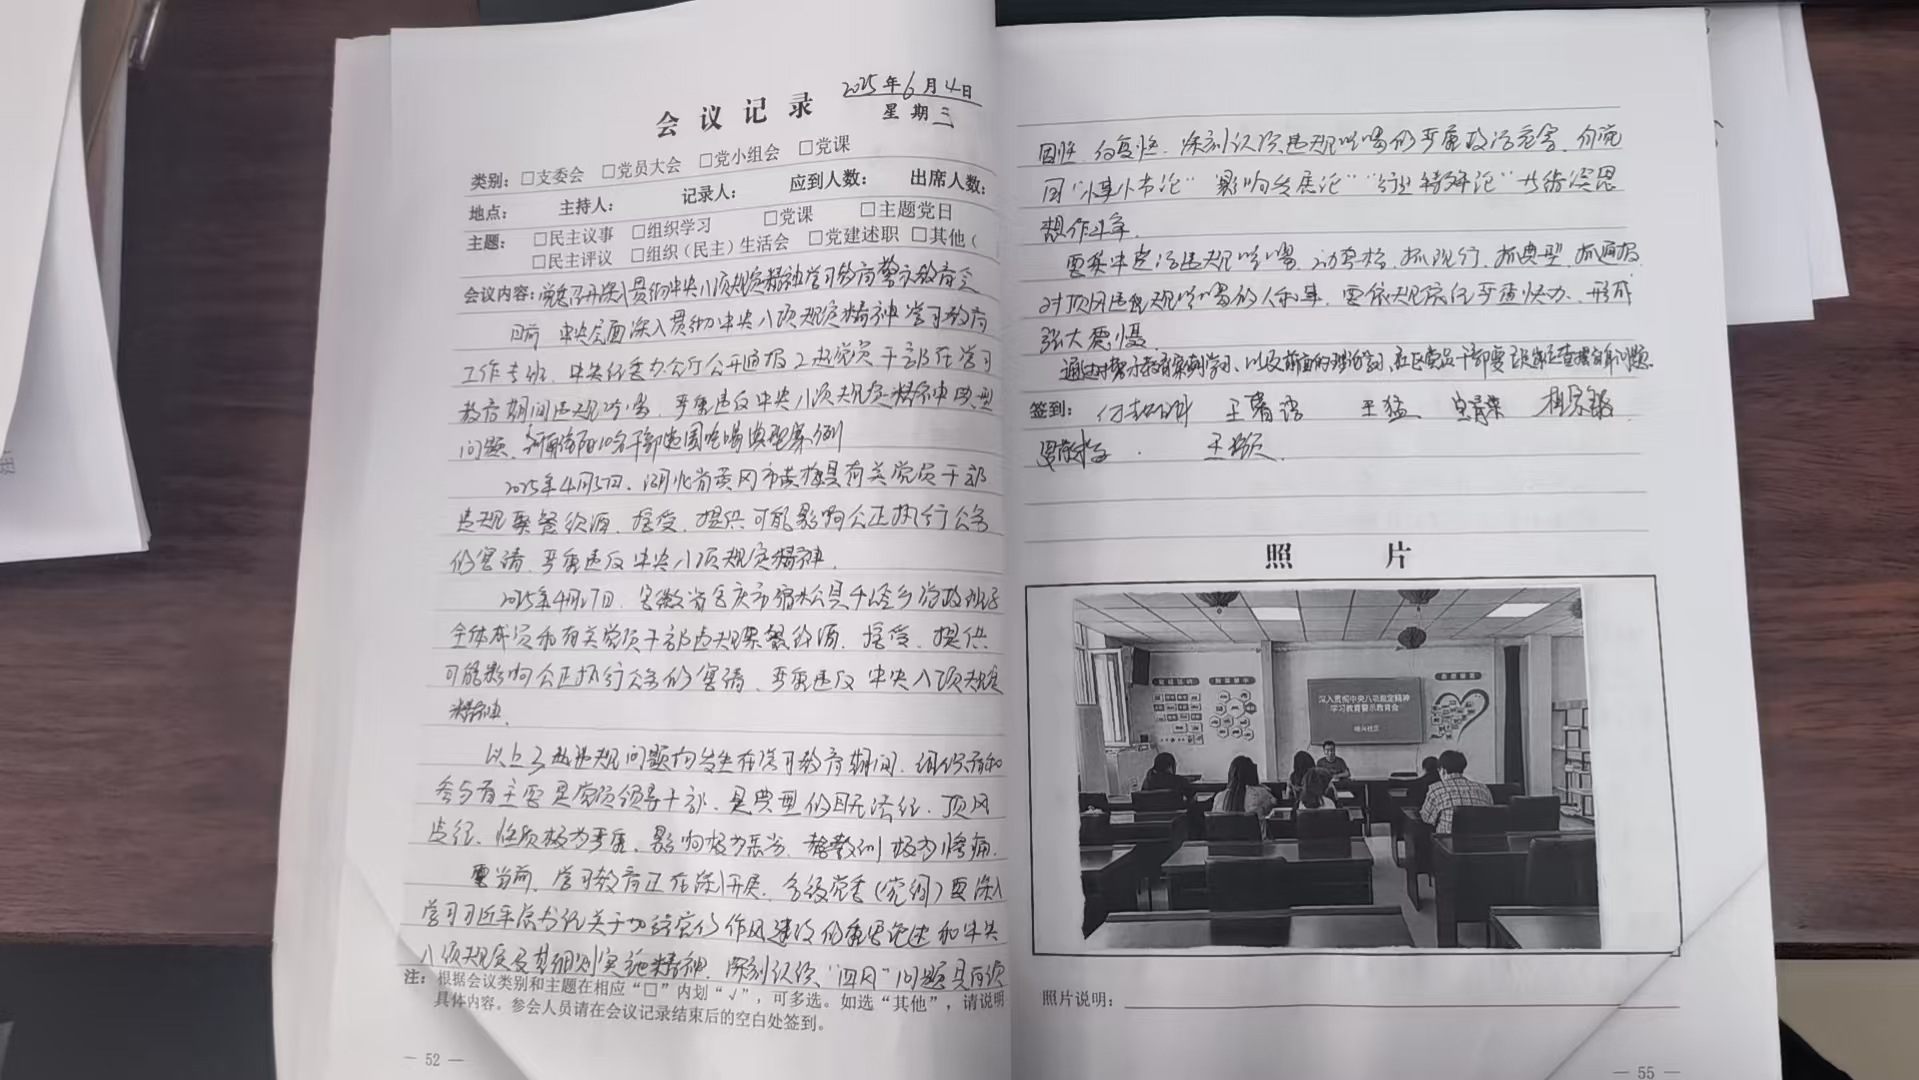 会议记录
2025年6月4日
星期三
类别：□支委会 □党员大会 □党小组会 □党课
地点： 主持人： 记录人： 应到人数： 出席人数：
主题： □民主议事 □组织学习 □党课 □主题党日
□民主评议 □组织（民主）生活会 □党建述职 □其他（
会议内容：召开深入贯彻中央八项规定精神学习教育警示教育会
日前 中央层面深入贯彻中央八项规定精神学习教育
工作专班、中央纪委办公厅公开通报2起党员干部在学习
教育期间违规吃喝、严重违反中央八项规定精神典型
问题、河南信阳10名干部违规吃喝典型案例
2025年4月5日、湖北省黄冈市黄梅县有关党员干部
违规聚餐饮酒、接受、提供可能影响公正执行公务
的宴请、严重违反中央八项规定精神。
2025年4月17日、安徽省安庆市宿松县千岭乡党政班子
全体成员和有关党员干部违规聚餐饮酒、接受、提供
可能影响公正执行公务的宴请、严重违反中央八项规定
精神。
以上3起违规问题均发生在学习教育期间、组织者和
参与者主要是党员领导干部、是典型的目无法纪、顶风
违纪、性质极为严重、影响极为恶劣、教训极为惨痛。
要当前、学习教育正在深入开展、各级党委（党组）要深入
学习习近平总书记关于加强党的作风建设的重要论述和中央
八项规定及其细则实施精神、深刻认识“四风”问题具有顽
注：根据会议类别和主题在相应“□”内划“√”，可多选。如选“其他”，请说明
具体内容。参会人员请在会议记录结束后的空白处签到。
— 52 —
固性、反复性、深刻认识违规吃喝的严重政治危害、和党
同“小事小节论”“影响发展论”“行业特殊论”等错误思
想作斗争。
要集中整治违规吃喝、动真格、抓现行、抓典型、抓通报
对顶风违纪违规吃喝的人和事、要依规依纪严查快办、形成
强大震慑。
通过对警示教育案例学习、以及前面的理论学习、社区党员干部要
签到： 王猛
照片
深入贯彻中央八项规定精神
学习教育警示教育会
照片说明：
— 55 —